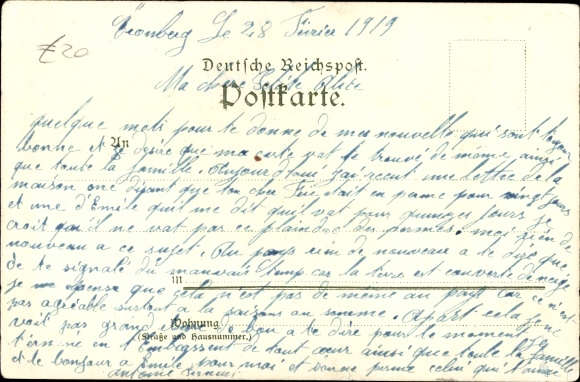 Cronberg Le 28 Février 1919
£20
Deutsche Reichspost.
Ma chère petite Alice
Postkarte.
quelque mots pour te donne de mes nouvelle qui sont toujour
An
bonne et je désire que ma carte vat te trouvé de même ainsi
que toute la famille. Aujourd'hui j'ai recut une lettre de la
maison one disant que ton cher est en perme pour vingt jours
et une d'Emile qu'il me dit qu'il vat pour quinze jours je
croit qu'il ne vat pas ce plaindre des permes. moi rien de
nouveau a ce sujet. Au pays rien de nouveau a te dire que
de te signalé du mauvais temp car la terre est couverte de neige
in
je pense que cela n'est pas de même au pays car ce n'est
pas agréable surtout a la saison ou nous somme. Apart cela je ne
voit pas grand chose de bon a te dire pour le moment je
Wohnung
(Straße und Hausnummer.)
termine en t'embrassent de tout cœur ainsi que toute la famille
et le bonjour a Emile pour moi et bonne perme celui qui t'aime
Antoine